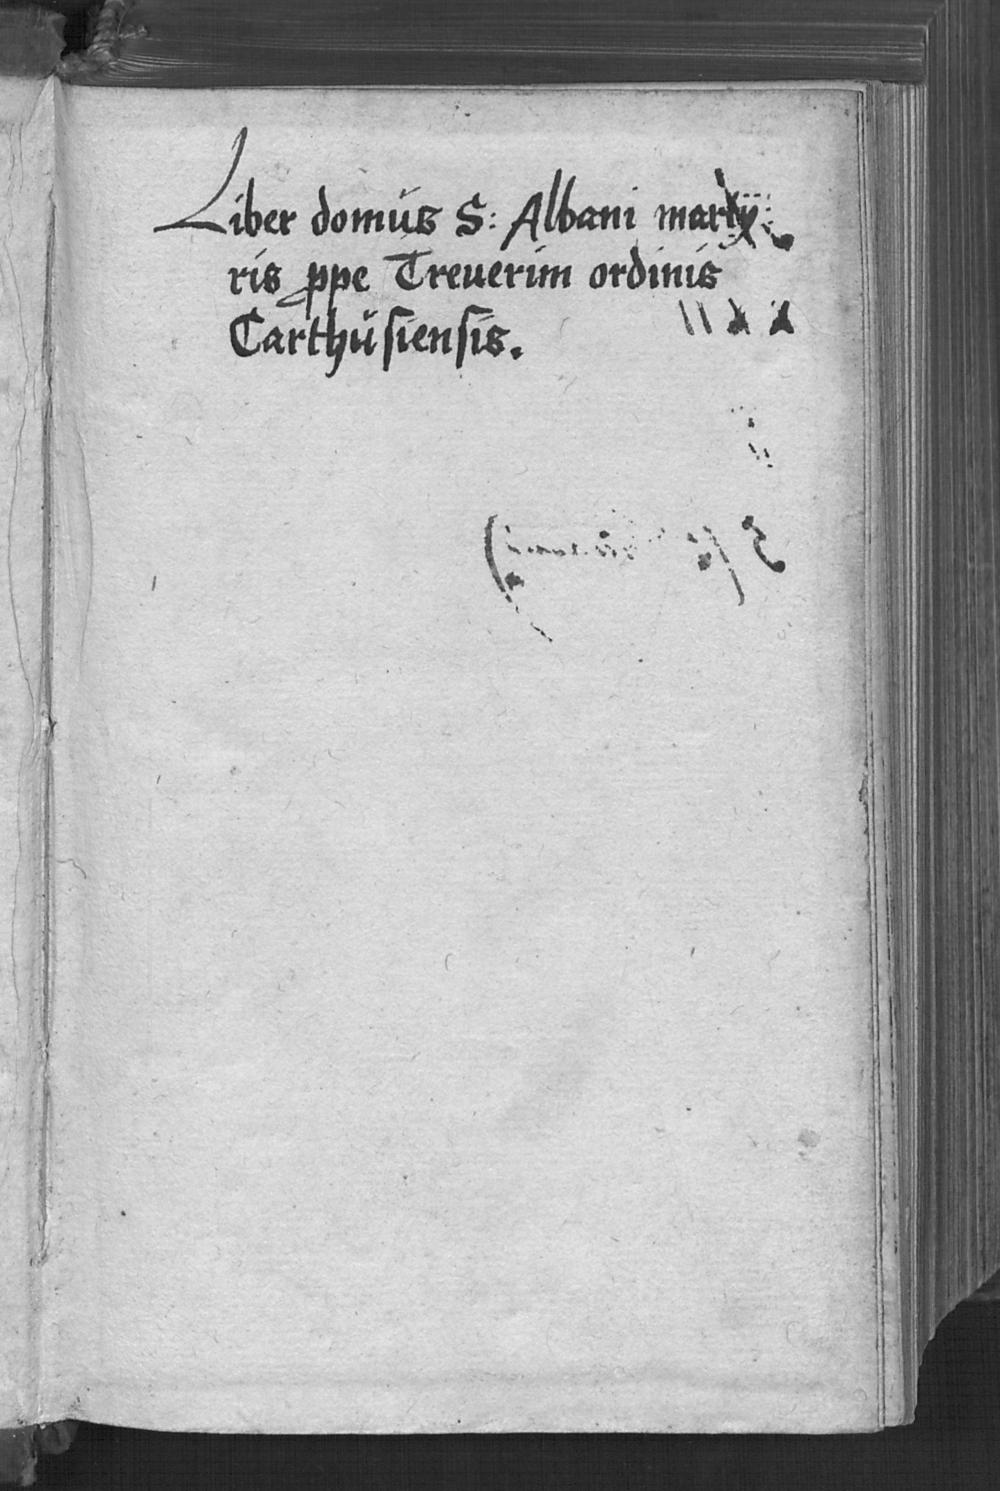 Liber domus S: Albani marty
ris ꝓpe Treuerim ordinis
Carthusiensis.